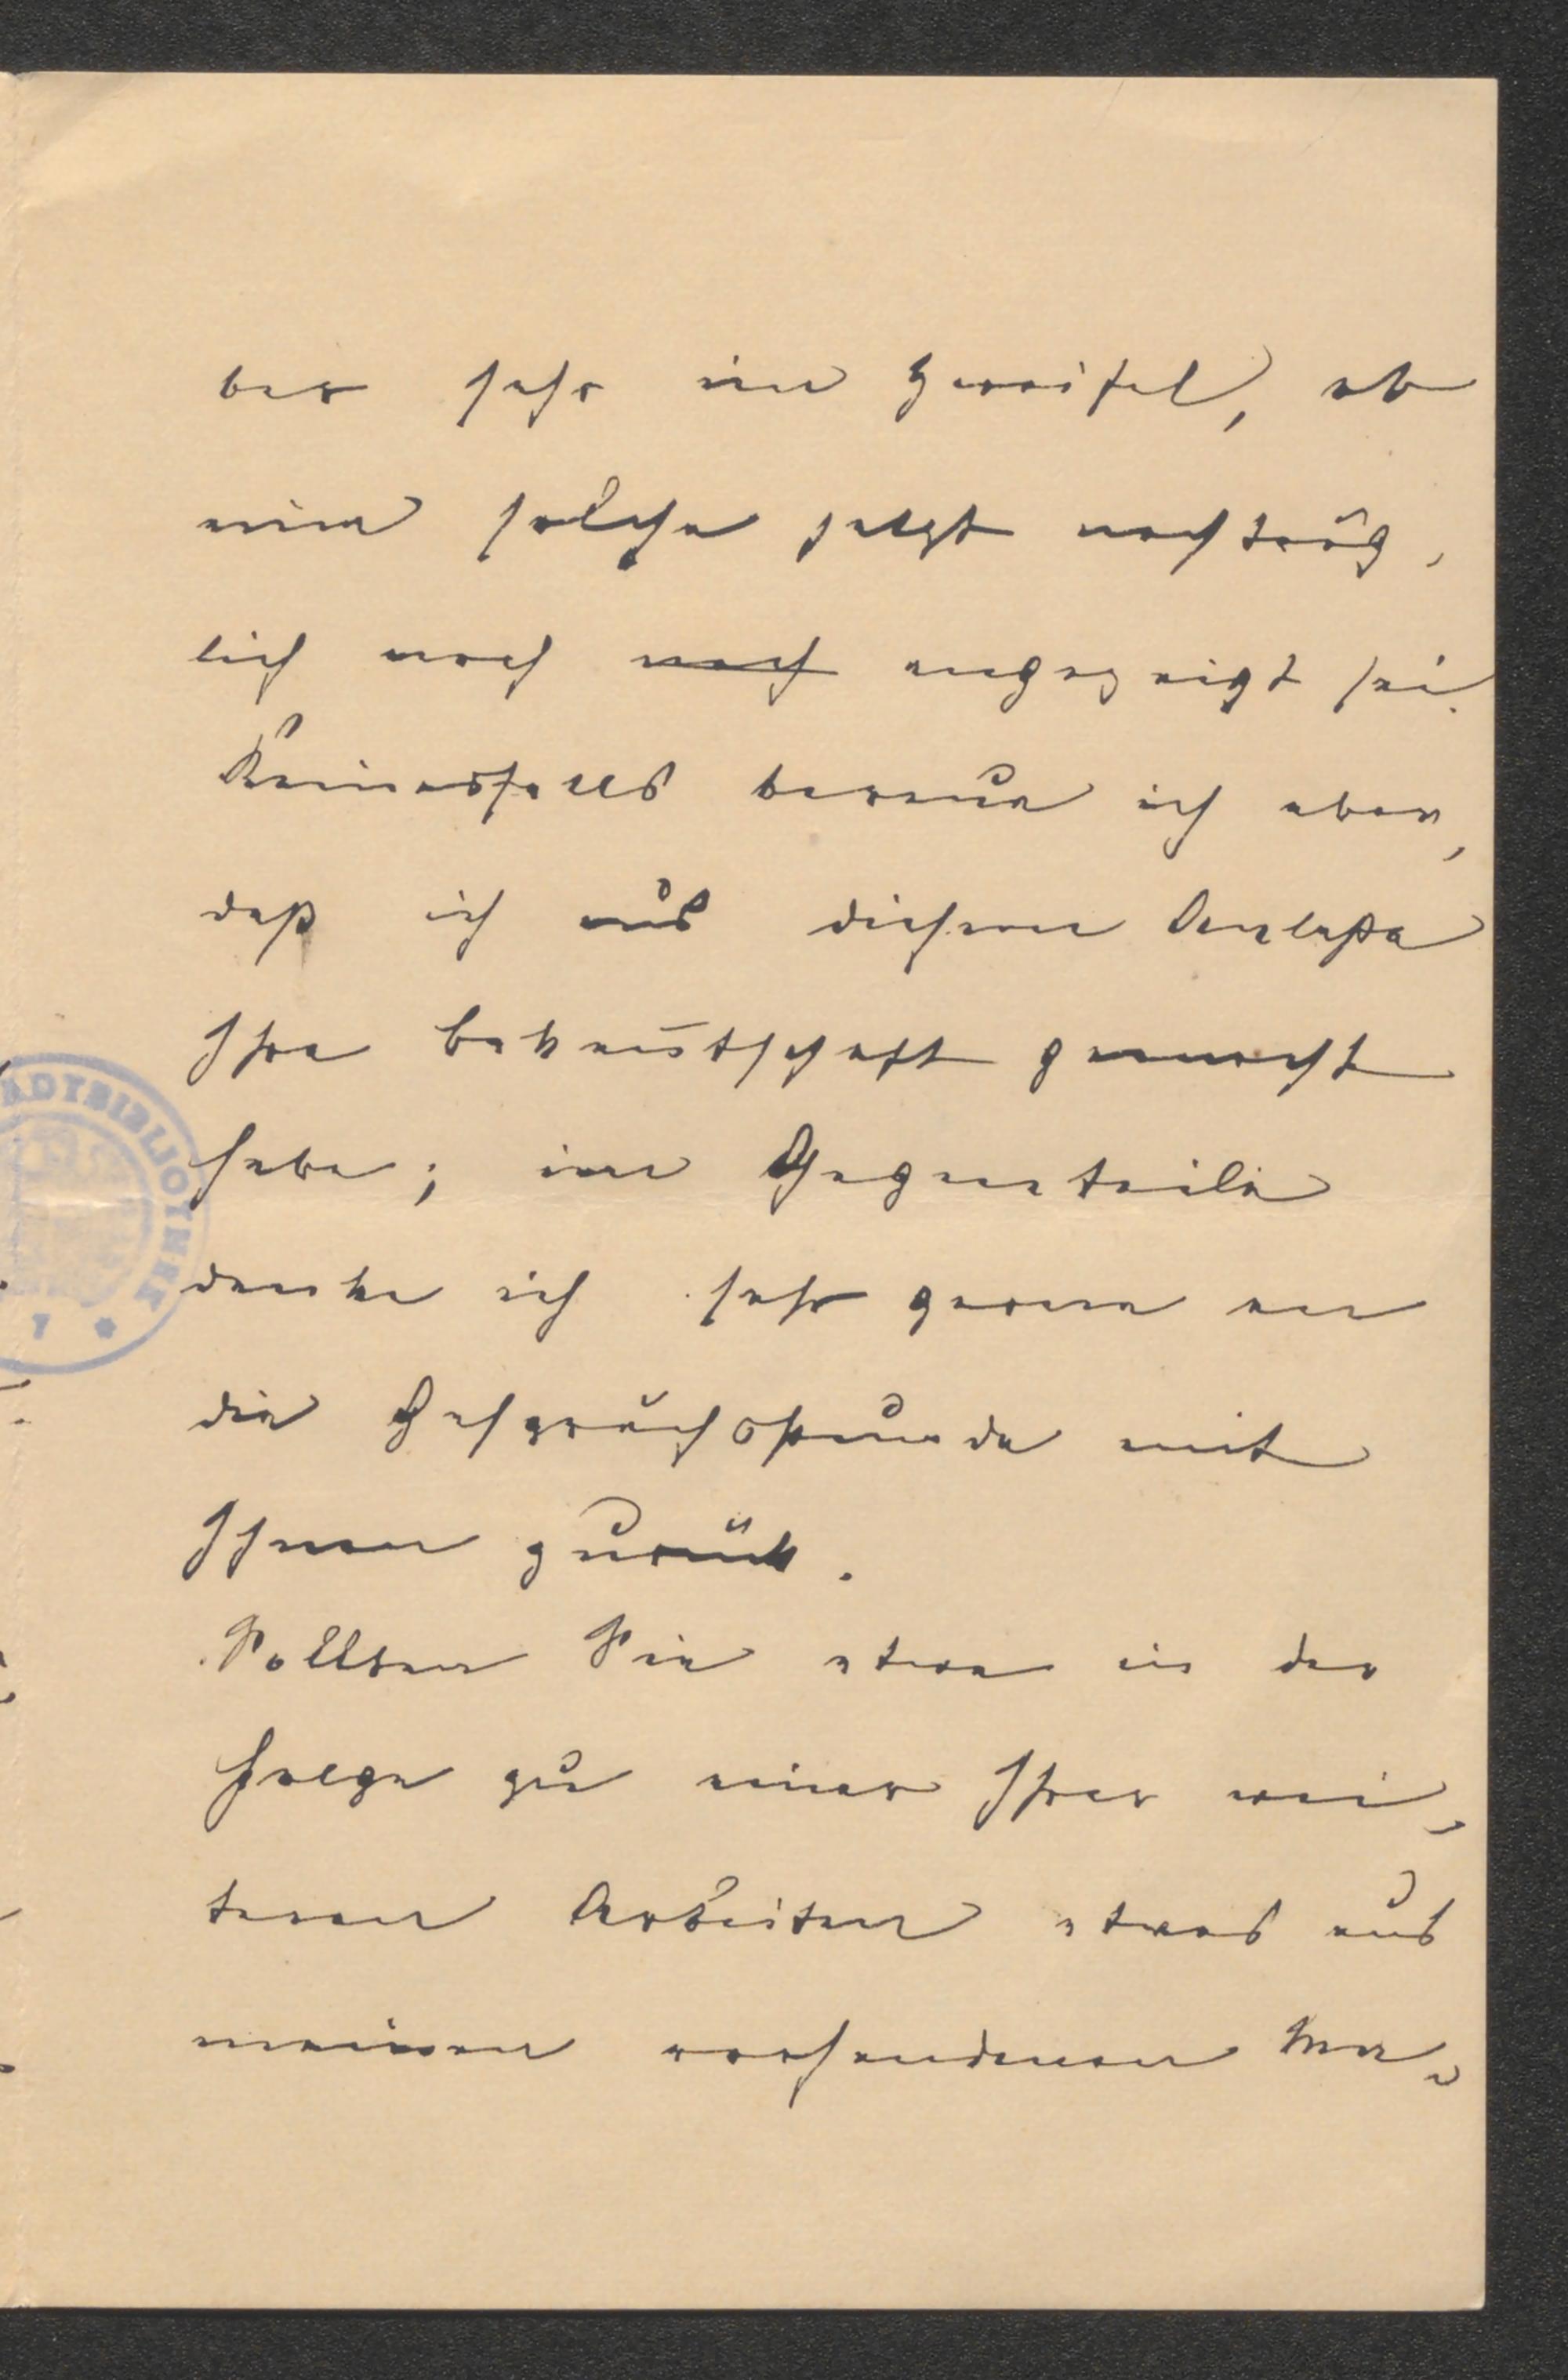 ber sehr im Zweifel, ob
eine solche jetzt nachträg-
lich noch noch angezeigt sei.
Keinesfalls bereue ich aber,
daß ich aus diesem Anlaße
Ihre Bekan̄tschaft gemacht
habe; im Gegenteile
denke ich sehr gerne an
die Gesprächsstunde mit
Ihnen zurück.
Sollten Sie etwa in der
Folge zu einer Ihrer wei-
teren Arbeiten etwas aus
meinen vorhandenen Ma-
ADTBIBLIOTHEK